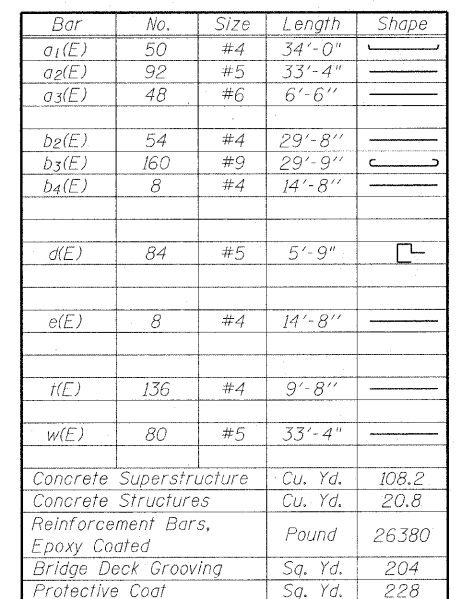 Bar No. Size Length Shape
a1(E) 50 #4 34'-0"
a2(E) 92 #5 33'-4"
a3(E) 48 #6 6'-6"
b2(E) 54 #4 29'-8"
b3(E) 160 #9 29'-9"
b4(E) 8 #4 14'-8"
d(E) 84 #5 5'-9"
e(E) 8 #4 14'-8"
t(E) 136 #4 9'-8"
w(E) 80 #5 33'-4"
Concrete Superstructure Cu. Yd. 108.2
Concrete Structures Cu. Yd. 20.8
Reinforcement Bars,
Epoxy Coated Pound 26380
Bridge Deck Grooving Sq. Yd. 204
Protective Coat Sq. Yd. 228